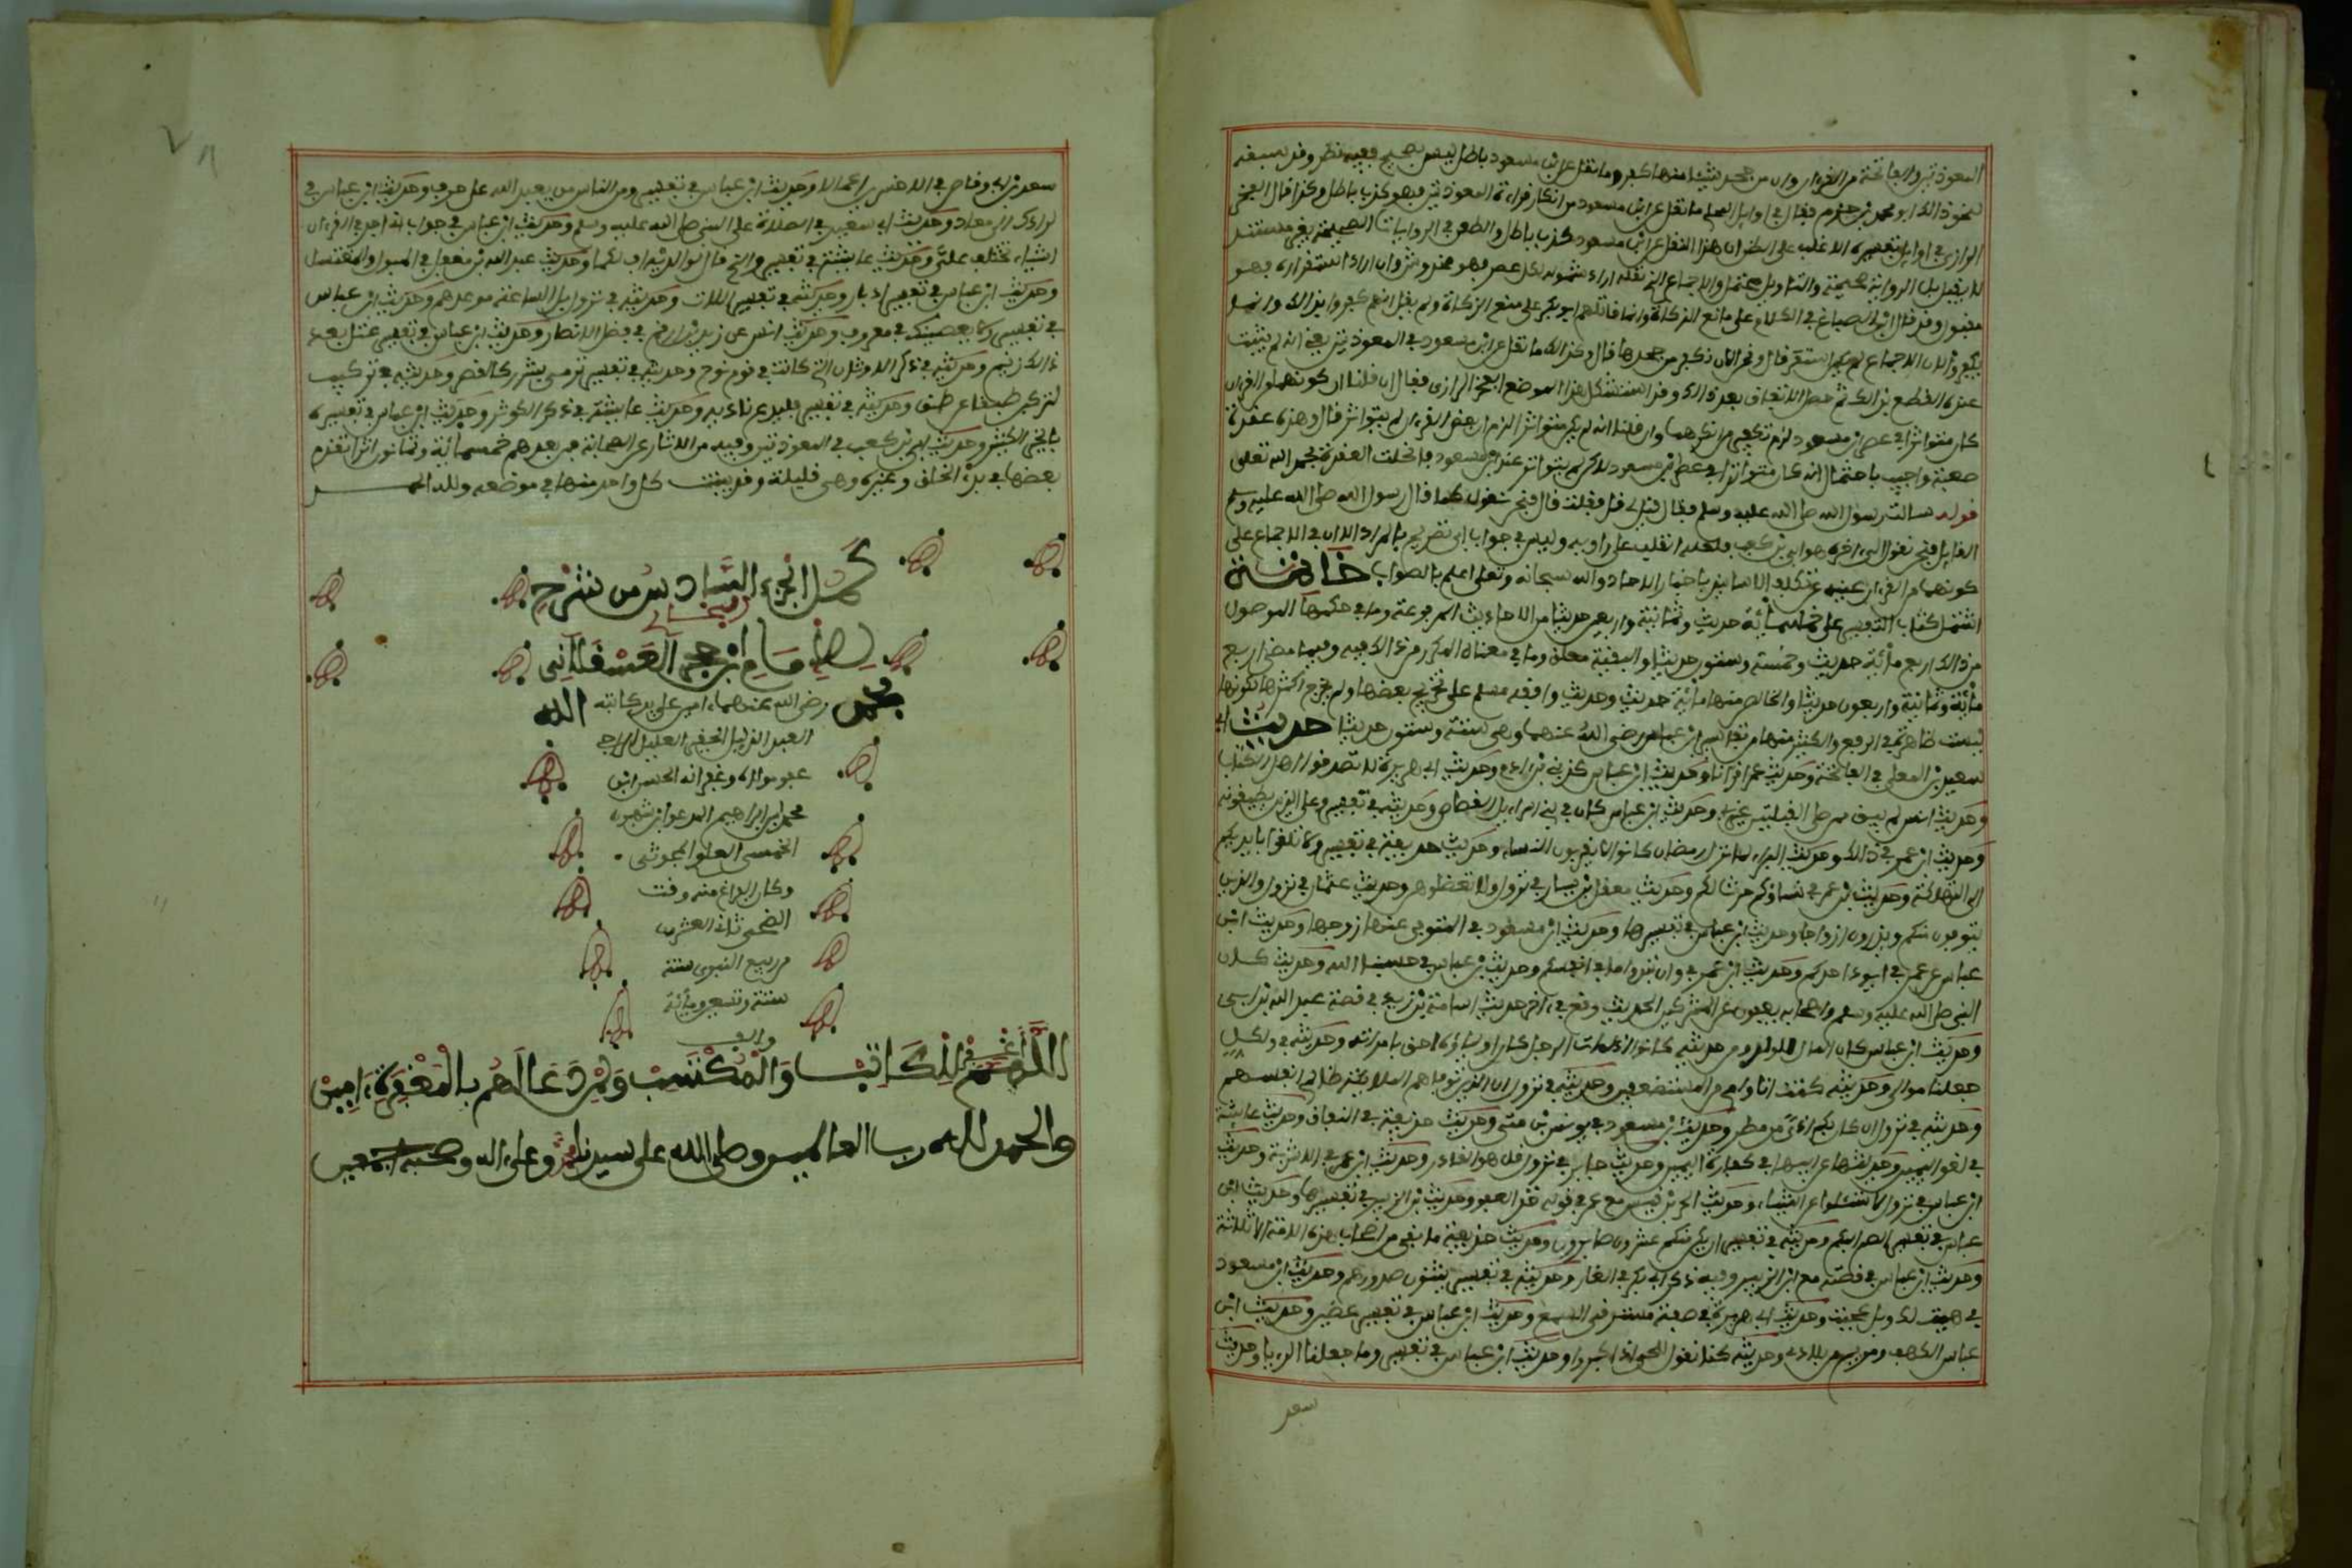 المعوذتين والفاتحة من القرءان وان من جحد شيئا منها كفر وما نقل عن ابن مسعود باطل ليس بصحيح ففيه نظر وقد سبقه
لنحو ذالك ابو محمد بن حزم فقال في اوايل المحلى ما نقل عن ابن مسعود من انكار قراءة المعوذتين فهو كذب باطل وكذا قال الفخر
الرازي في اوايل تفسيره الاغلب على الظن ان هذا النقل عن ابن مسعود كذب باطل والطعن في الروايات الصحيحة بغير مستند
لا يقبل بل الرواية صحيحة والتاويل محتمل والاجماع الذي نقله ان اراد شموله لكل عصر فهو مخدوش وان اراد استقراره فهو
مقبول وقد قال ابن الصباغ في الكلام على مانع الزكاة وانما قاتلهم ابو بكر على منع الزكاة ولم يقل انهم كفروا بذالك وانما لم
يكفروا لان الاجماع لم يكن استقر قال ونحن الان نكفر من جحدها قال وكذالك ما نقل عن ابن مسعود في المعوذتين يعني انه لم يثبت
عنده القطع بذالك ثم حصل الاتفاق بعد ذالك وقد استشكل هذا الموضع الفخر الرازي فقال ان قلنا ان كونهما من القرءان
كان متواترا في عصر ابن مسعود لزم تكفير من انكرهما وان قلنا انه لم يكن متواترا لزم ان بعض القرءان لم يتواتر قال وهذه عقدة
صعبة واجيب باحتمال انه كان متواترا في عصر ابن مسعود لاكن لم يتواتر عند ابن مسعود فانحلت العقدة بحمد الله تعلى
قوله سالت رسول الله صلى الله عليه وسلم فقال قيل لي قل فقلت قال فنحن نقول كما قال رسول الله صلى الله عليه وسلم
القايل فنحن نقول الى ءاخره هو ابي بن كعب فلعله انقلب على راويه وليس في جواب ابي تصريح بالمراد الا ان في الاجماع على
كونهما من القرءان غنية عن تكلف الاسانيد باخبار الاحاد والله سبحانه وتعلى اعلم بالصواب خاتمة
اشتمل كتاب التفسير على خمسمائة حديث وثمانية واربعين حديثا من الاحاديث المرفوعة وما في حكمها الموصول
من ذالك اربع مائة حديث وخمسة وستون حديثا والبقية معلق وما في معناه المكرر من ذالك فيه وفيما مضى اربع
مائة وثمانية واربعون حديثا والخالص منها مائة حديث وحديث وافقه مسلم على تخريج بعضها ولم يخرج اكثرها لكونها
ليست ظاهرة في الرفع والكثير منها من تفاسير ابن عباس رضي الله عنهما وهي ستة وستون حديثا حديث ابي
سعيد بن المعلى في الفاتحة وحديث عمر ابي اقرانا وحديث ابن عباس كذبني ابن ءادم وحديث ابي هريرة لا تصدقوا اهل الكتاب
وحديث انس لم يبق ممن صلى القبلتين غيري وحديث ابن عباس كان في بني اسراءيل القصاص وحديثه في تفسير وعلى الذين يطيقونه
وحديث ابن عمر في ذالك وحديث البراء لما نزل رمضان كانوا لا يقربون النساء وحديث حذيفة في تفسير ولا تلقوا بايديكم
الى التهلكة وحديث ابن عمر في نساؤكم حرث لكم وحديث معقل بن يسار في نزول ولا تعضلوهن وحديث عثمان في نزول والذين
يتوفون منكم ويذرون ازواجا وحديث ابن عباس في تفسيرها وحديث ابن مسعود في المتوفى عنها زوجها وحديث ابن
عباس عن عمر في ايود احدكم وحديث ابن عمر في وان تبدوا ما في انفسكم وحديث ابن عباس في حسبنا الله وحديث كان
النبي صلى الله عليه وسلم واصحابه يعفون عن المشركين الحديث وقع في ءاخر حديث اسامة بن زيد في قصة عبد الله بن ابي
وحديث ابن عباس كان المال للولد وحديثه كانوا اذا مات الرجل كان اولياؤه احق بامراته وحديثه في ولكل
جعلنا موالي وحديثه كنت انا وامي من المستضعفين وحديثه في نزول ان الذين توفاهم الملائكة ظالمي انفسهم
وحديثه في نزول ان كان بكم اذى من مطر وحديث ابن مسعود في يونس بن متى وحديث حذيفة في النفاق وحديث عائشة
في لغو اليمين وحديثها عن ابيها في كفارة اليمين وحديث جابر في نزول قل هو القادر وحديث ابن عمر في الاشربة وحديث
ابن عباس في نزول لا تسئلوا عن اشياء وحديث الحر بن قيس مع عمر في قوله خذ العفو وحديث ابن الزبير في تفسيرها وحديث ابن
عباس في تفسير الصم البكم وحديثه في تفسير ان يكن منكم عشرون صابرون وحديث حذيفة ما بقي من اصحاب هذه الاية الا ثلاثة
وحديث ابن عباس في قصته مع ابن الزبير وفيه ذكر ابي بكر في الغار وحديثه في تفسير يثنون صدورهم وحديث ابن مسعود
في هيت لك وبل عجبت وحديث ابي هريرة في صفة مسترقي السمع وحديث ابن عباس في تفسير عضين وحديث ابن
عباس الكهف ومريم من تلادي وحديثه كنا نقول للحي اذا كثروا وحديث ابن عباس في تفسير وما جعلنا الرءيا وحديث
سعد
سعد بن ابي وقاص في الاخسرين اعمالا وحديث ابن عباس في تفسير ومن الناس من يعبد الله على حرف وحديث ابن عباس في
لرادك الى معاد وحديث ابي سعيد في الصلاة على النبي صلى الله عليه وسلم وحديث ابن عباس في جواب اني اجد في القرءان
اشياء تختلف علي وحديث عايشة في تفسير والذي قال لوالديه اف لكما وحديث عبد الله بن مغفل في البول في المغتسل
وحديث ابن عباس في تفسير ادبار وحديثه في تفسير اللات وحديثه في نزول بل الساعة موعدهم وحديث ابن عباس
في تفسير ولا يعصينك في معروف وحديث انس عن زيد بن ارقم في فضل الانصار وحديث ابن عباس في تفسير عتل بعد
ذالك زنيم وحديثه في ذكر الاوثان التي كانت في قوم نوح وحديثه في تفسير ترمي بشرر كالقصر وحديثه في
لتركبن طبقا عن طبق وحديثه في تفسير فليدع ناديه وحديث عايشة في ذكر الكوثر وحديث ابن عباس في تفسيره
بالخير الكثير وحديث ابي بن كعب في المعوذتين وفيه من الاثار عن الصحابة فمن بعدهم خمسمائة وثمانون اثرا تقدم
بعضها في بدء الخلق وغيره وهي قليلة وقد بينت كل واحد منها في موضعه ولله الحمد
كمل الجزء السادس من شرح
البخاري
للامام ابن حجر العسقلاني
رضي الله عنهما ءامين على يد كاتبه
العبد الذليل الحقير العليل الراجي
عفو مولاه وغفرانه الحسن ابن
محمد بن ابراهيم المدعو ابن شهبو
الخمسي العلو
وكان الفراغ منه وقت
الضحى ثاني العشرين
من ربيع النبوي سنة
ستة وتسعين ومائة
والف
اللهم اغفر للكاتب والمكتسب ولمن دعا لهم بالمغفرة ءامين
والحمد لله رب العالمين وصلى الله على سيدنا محمد وعلى اله وصحبه اجمعين